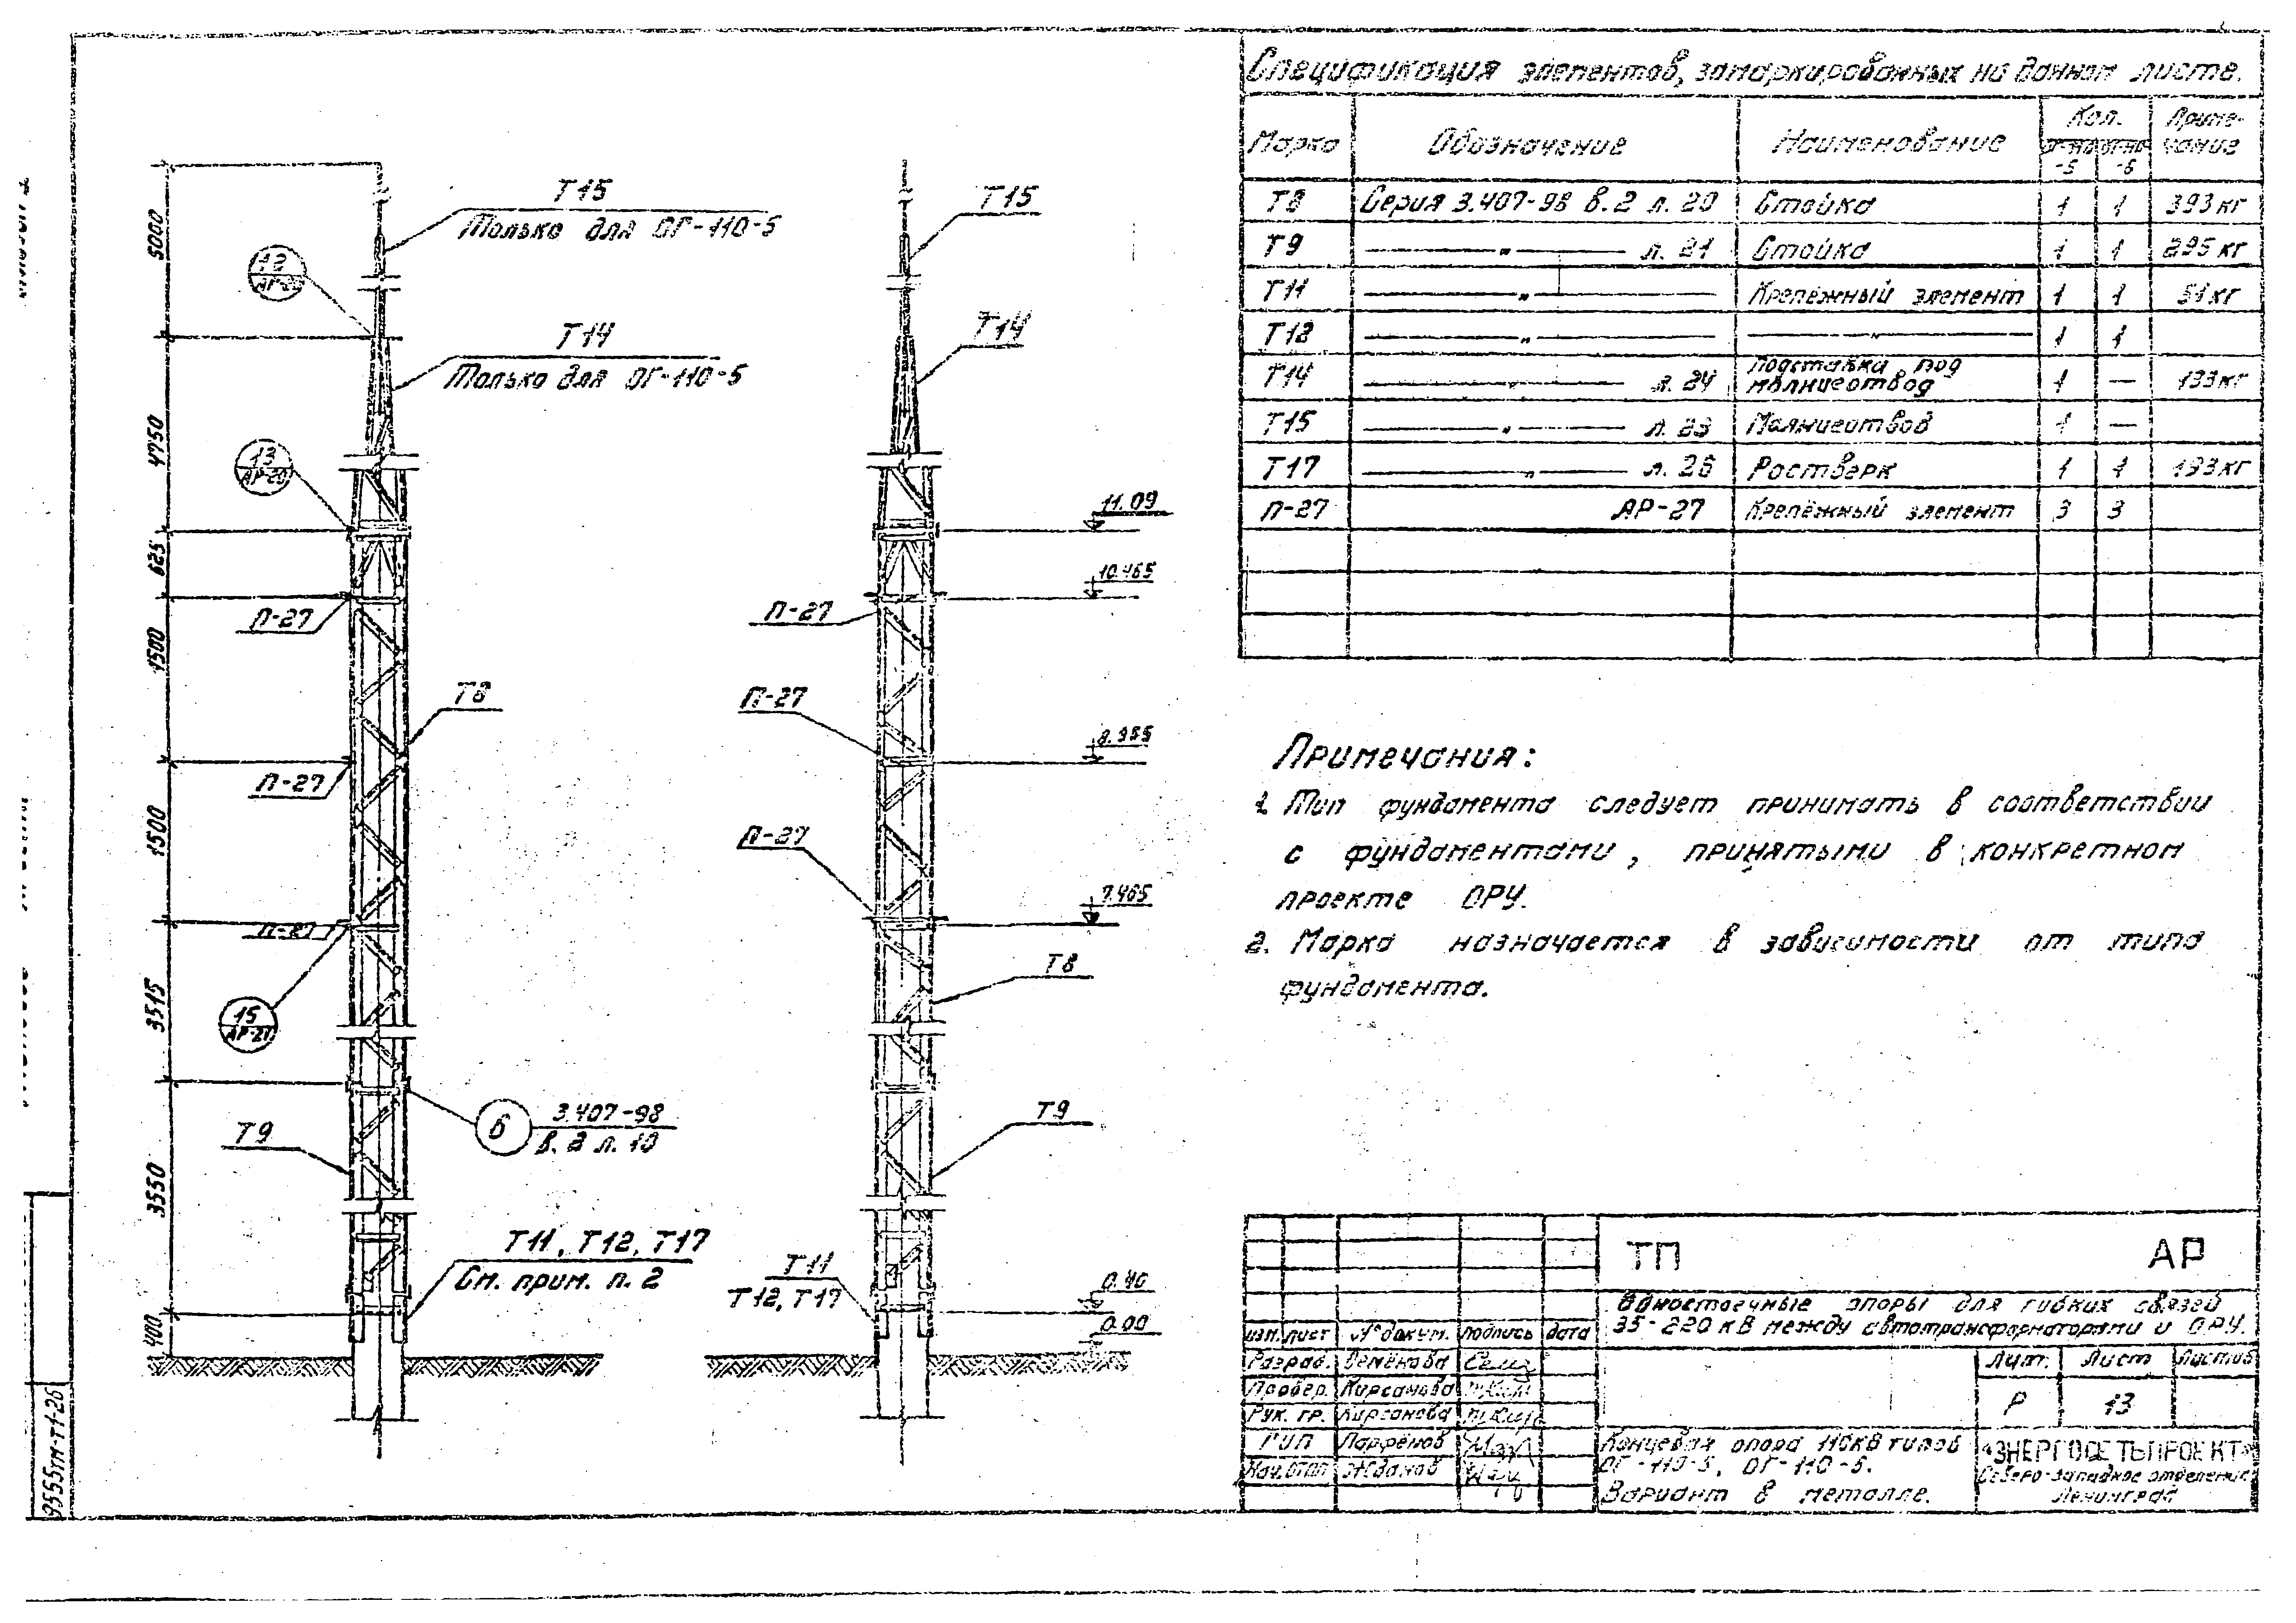 Спецификация элементов, замаркированных на данном листе.
Марка Обозначение Наименование Кол. Приме-
чание
-5 -6
Т8 Серия 3.407-98 в.2 л. 20 Стойка 1 1 393 кг
Т9 " л. 21 Стойка 1 1 295 кг
Т11 " Крепёжный элемент 1 1 51 кг
Т12 " " 1 1
Т14 " л. 24 Подставка под
молниеотвод 1 — 133 кг
Т15 " л. 23 Молниеотвод 1 —
Т17 " л. 26 Ростверк 1 1 193 кг
П-27 АР-27 Крепёжный элемент 3 3
Примечания:
1. Тип фундамента следует принимать в соответствии
с фундаментами, принятыми в конкретном
проекте ОРУ.
2. Марка назначается в зависимости от типа
фундамента.
5000
4750
625
1500
1500
3515
3550
400
Т15
Только для ОГ-110-5
12
Т14
Только для ОГ-110-5
13
АР-20
П-27
Т8
П-27
П-27
15
АР-21
6
3.407-98
в. 2 л. 10
Т9
Т11, Т12, Т17
См. прим. п. 2
Т15
Т14
11.09
10.465
П-27
П-27
П-27
7.465
Т8
Т9
Т11
Т12, Т17
0.40
0.00
ТП АР
Одностоечные опоры для гибких связей
35-220 кВ между автотрансформаторами и ОРУ.
Изм. Лист № докум. Подпись Дата
Разраб. Семёнова
Провер. Кирсанова
Рук. гр. Кирсанова
ГИП Парфёнов
Жданов
Лит. Лист Листов
Р 13
Концевая опора 110кВ типов
ОГ-110-5, ОГ-110-6.
Вариант в металле.
«ЭНЕРГОСЕТЬПРОЕКТ»
Северо-Западное отделение
Ленинград
9555тм-т1-26